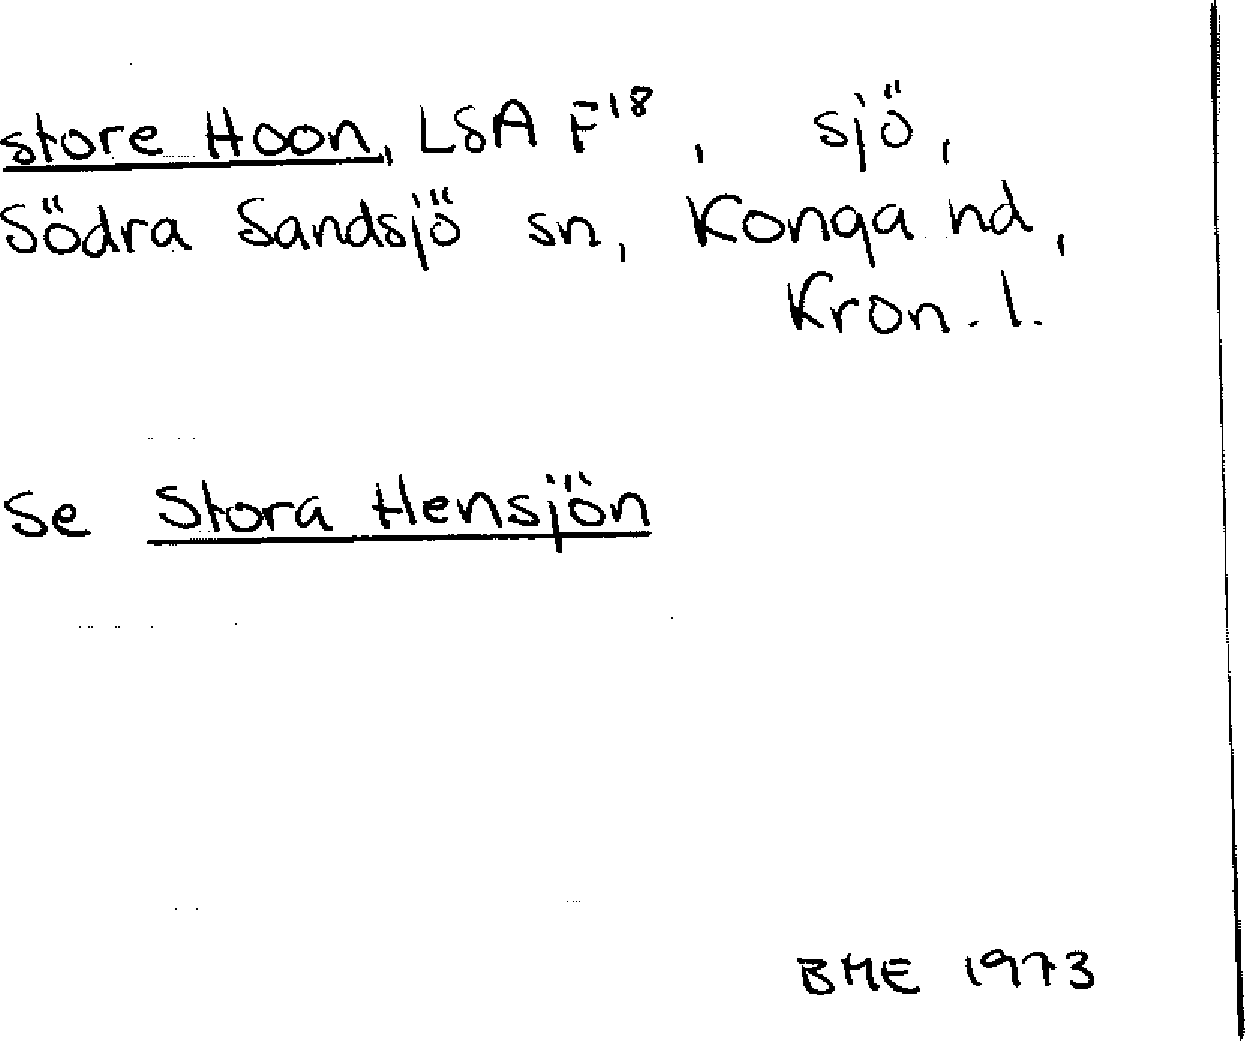 store Hoon, LSA F18, sjö,
Södra Sandsjö sn, Konga hd,
Kron. l.
Se Stora Hensjön
BME 1973